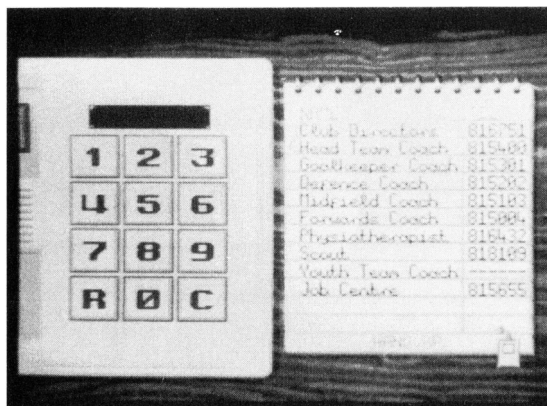 1 2 3
4 5 6
7 8 9
R 0 C
Club Directors 816751
Head Team Coach 815400
Goalkeeper Coach 815301
Defence Coach 815202
Midfield Coach 815103
Forwards Coach 815004
Physiotherapist 816432
Scout 818109
Youth Team Coach ------
Job Centre 815655